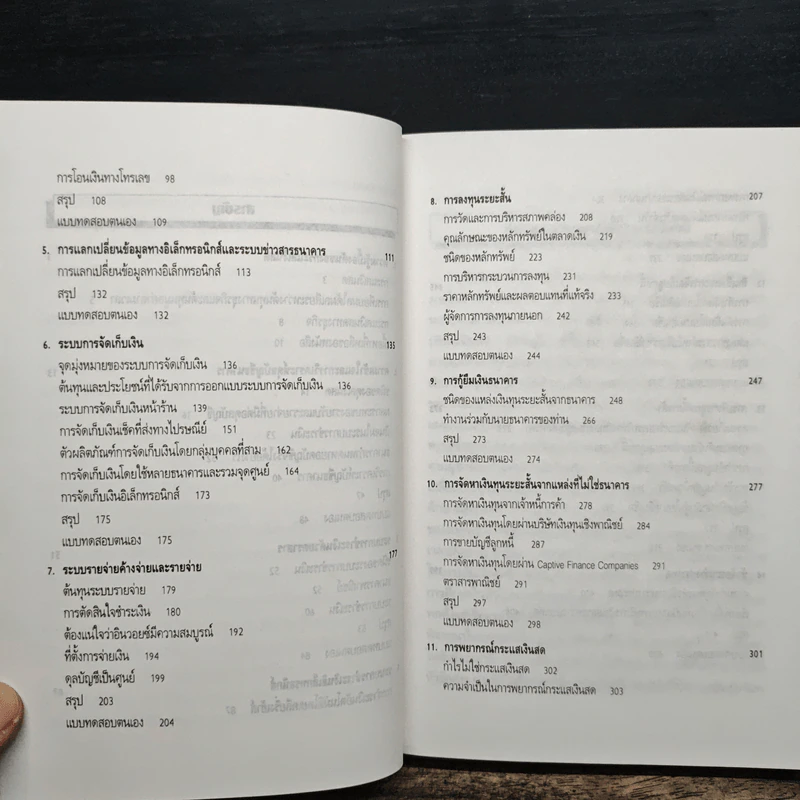 การโอนเงินทางโทรเลข 98
สรุป 108
แบบทดสอบตนเอง 109
5. การแลกเปลี่ยนข้อมูลทางอิเล็กทรอนิกส์และระบบข่าวสารธนาคาร 111
การแลกเปลี่ยนข้อมูลทางอิเล็กทรอนิกส์ 113
สรุป 132
แบบทดสอบตนเอง 132
6. ระบบการจัดเก็บเงิน 135
จุดมุ่งหมายของระบบการจัดเก็บเงิน 136
ต้นทุนและประโยชน์ที่ได้รับจากการออกแบบระบบการจัดเก็บเงิน 136
ระบบการจัดเก็บเงินหน้าร้าน 139
การจัดเก็บเงินเช็คที่ส่งทางไปรษณีย์ 151
ตัวผลิตภัณฑ์การจัดเก็บเงินโดยกลุ่มบุคคลที่สาม 162
การจัดเก็บเงินโดยใช้หลายธนาคารและรวมจุดศูนย์ 164
การจัดเก็บเงินอิเล็กทรอนิกส์ 173
สรุป 175
แบบทดสอบตนเอง 175
7. ระบบรายจ่ายค้างจ่ายและรายจ่าย 177
ต้นทุนระบบรายจ่าย 179
การตัดสินใจชำระเงิน 180
ต้องแน่ใจว่าอินวอยซ์มีความสมบูรณ์ 192
ที่ตั้งการจ่ายเงิน 194
ดุลบัญชีเป็นศูนย์ 199
สรุป 203
แบบทดสอบตนเอง 204
8. การลงทุนระยะสั้น 207
การวัดและการบริหารสภาพคล่อง 208
คุณลักษณะของหลักทรัพย์ในตลาดเงิน 219
ชนิดของหลักทรัพย์ 223
การบริหารกระบวนการลงทุน 231
ราคาหลักทรัพย์และผลตอบแทนที่แท้จริง 233
ผู้จัดการการลงทุนภายนอก 242
สรุป 243
แบบทดสอบตนเอง 244
9. การกู้ยืมเงินธนาคาร 247
ชนิดของแหล่งเงินทุนระยะสั้นจากธนาคาร 248
ทำงานร่วมกับนายธนาคารของท่าน 266
สรุป 273
แบบทดสอบตนเอง 274
10. การจัดหาเงินทุนระยะสั้นจากแหล่งที่ไม่ใช่ธนาคาร 277
การจัดหาเงินทุนจากเจ้าหนี้การค้า 278
การจัดหาเงินทุนโดยผ่านบริษัทเงินทุนเชิงพาณิชย์ 284
การขายบัญชีลูกหนี้ 287
การจัดหาเงินทุนโดยผ่าน Captive Finance Companies 291
ตราสารพาณิชย์ 291
สรุป 297
แบบทดสอบตนเอง 298
11. การพยากรณ์กระแสเงินสด 301
กำไรไม่ใช่กระแสเงินสด 302
ความจำเป็นในการพยากรณ์กระแสเงินสด 303